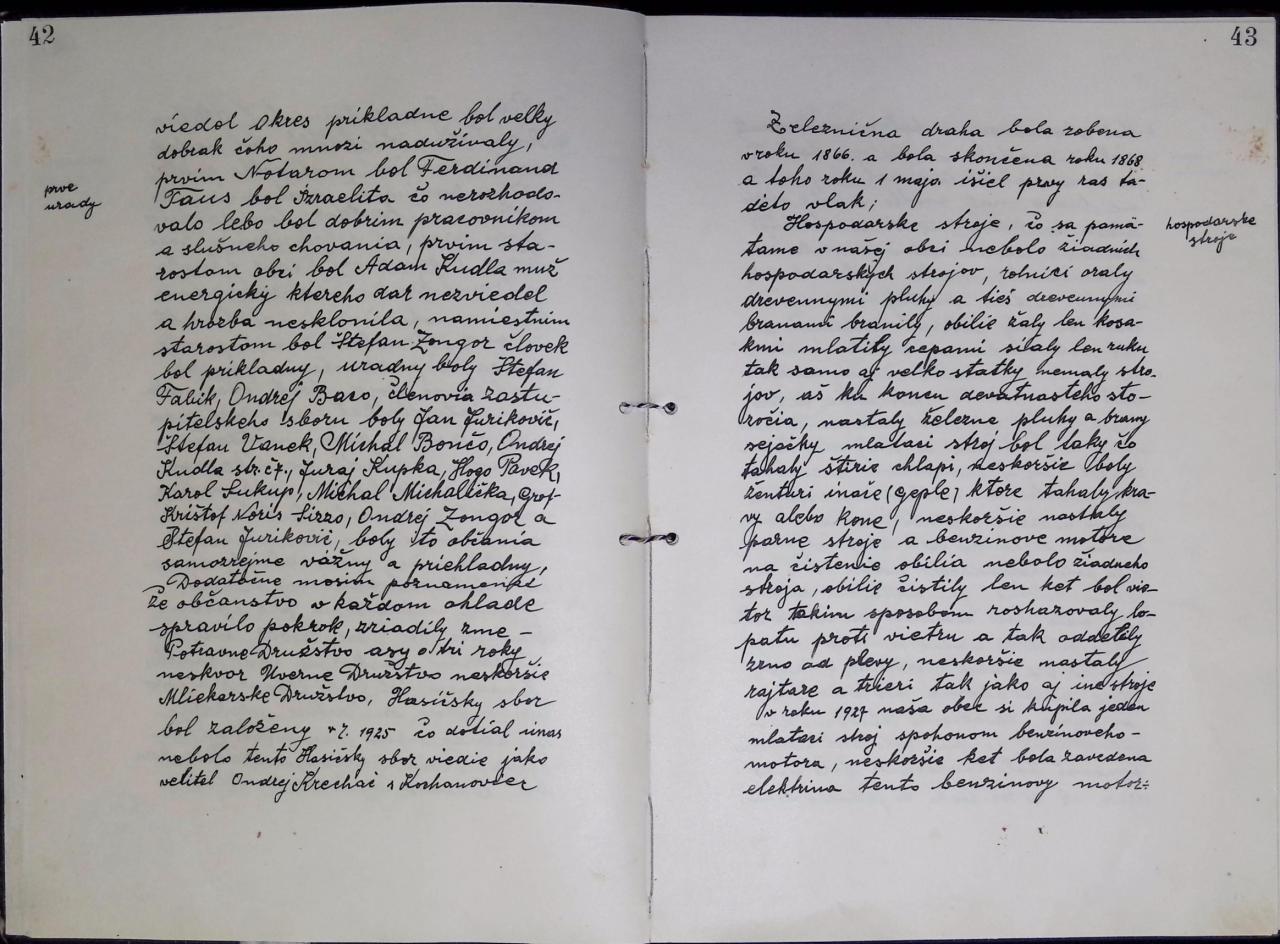 42
viedol Okres prikladne bol velky
dobrak čoho mnozi nadužívaly,
prvim Notarom bol Ferdinand
prve
urady
Taus bol Izraelita čo nerozhodo-
valo lebo bol dobrim pracovnikom
a slušneho chovania, prvim sta-
rostom obci bol Adam Kudla muž
energický ktereho dar nezviedel
a hrozba nesklonila, namiestnim
starostom bol Štefan Žongor človek
bol prikladny, uradny boly Štefan
Fabik, Ondrej Baco, členovia zastu-
pitelskeho sboru boly Jan Jurikovič,
Štefan Vanek, Michal Bončo, Ondrej
Kudla str. č7., Juraj Kupka, Hogo Pavek,
Karol Sukup, Michal Michalička, Grof-
Krištof Noris Sizzo, Ondrej Žongor a
Štefan Jurikovič, boly to občania
samozrejme vážny a priehladny,
Dodatočne mosim poznamenat
že občanstvo v každom ohlade
spravilo pokrok, zriadily zme -
Potravne Družstvo asy o tri roky
neskvor Uverne Družstvo neskoršie
Mliekarske Družstvo, Hasičsky sbor
bol založeny v r. 1925 čo dotial unas
nebolo tento Hasičsky sbor viedie jako
velitel Ondrej Krechač i Kochanovier
43
Železnična draha bola robena
vroku 1866. a bola skončena roku 1868
a toho roku 1 maja išiel prvy ras ta-
deto vlak;
Hospodarske stroje, čo sa pamä-
hospodarske
stroje
tame v našej obci nebolo žiadnich
hospodarských strojov, rolnici oraly
drevennymi pluhy a tieš drevennymi
branami branily, obilie žaly len kosa-
kmi mlatily cepami sialy len ruku
tak samo aj velko statky nemaly stro-
jov, aš ku koncu devatnasteho sto-
ročia, nastaly železne pluhy a brany
sejačky mlataci stroj bol taky čo
tahaly štirie chlapi, neskoršie boly
ženturi inače (geple) ktore tahaly kra-
vy alebo kone, neskoršie nastaly
parne stroje a benzinove motore
na čistenie obilia nebolo žiadneho
stroja, obilie čistily len ket bol vie-
tor takim sposobom roshazovaly lo-
patu proti vietru a tak oddetily
zrno od plevy, neskoršie nastaly
rajtare a trieri tak jako aj ine stroje
v roku 1927 naša obec si kúpila jeden
mlataci stroj spohonom benzínoveho-
motora, neskoršie ket bola zavedena
elektrina tento benzinovy motor: